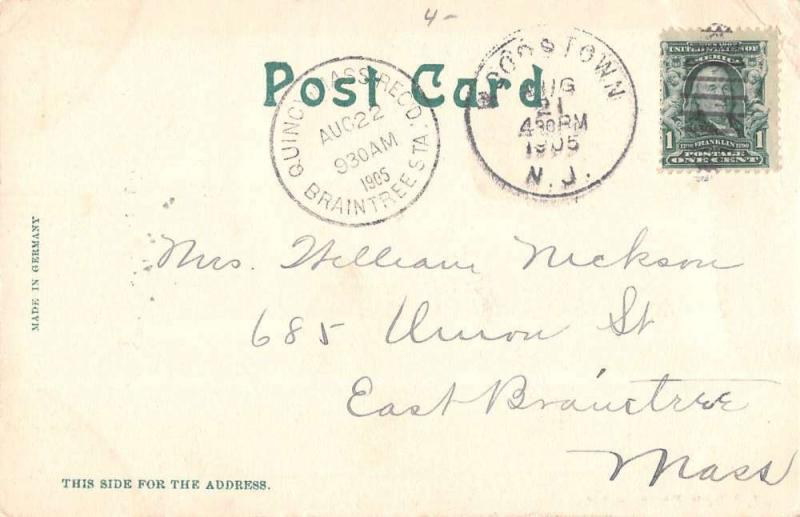 4-
Post Card
QUINCY, MASS. REC'D.
AUG 22
930 AM
1905
BRAINTREE STA.
AUG
21
430 PM
1905
N. J.
UNITED STATES OF
AMERICA
1 1
POSTAGE
ONE CENT
Mrs. William Nickson
685 Union St
East Braintree
Mass
MADE IN GERMANY
THIS SIDE FOR THE ADDRESS.